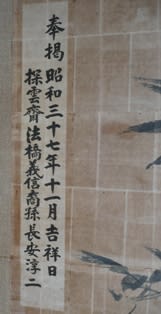 奉揭 昭和三十七年十一月吉祥日
探雲齋法橋義信裔孫長安淳二